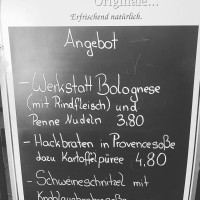 Originale...
Erfrischend natürlich.
Angebot
- Werkstatt Bolognese
(mit Rindfleisch) und
Penne Nudeln 3.80
- Hackbraten in Provencesoße
dazu Kartoffelpüree 4,80
- Schweineschnitzel mit